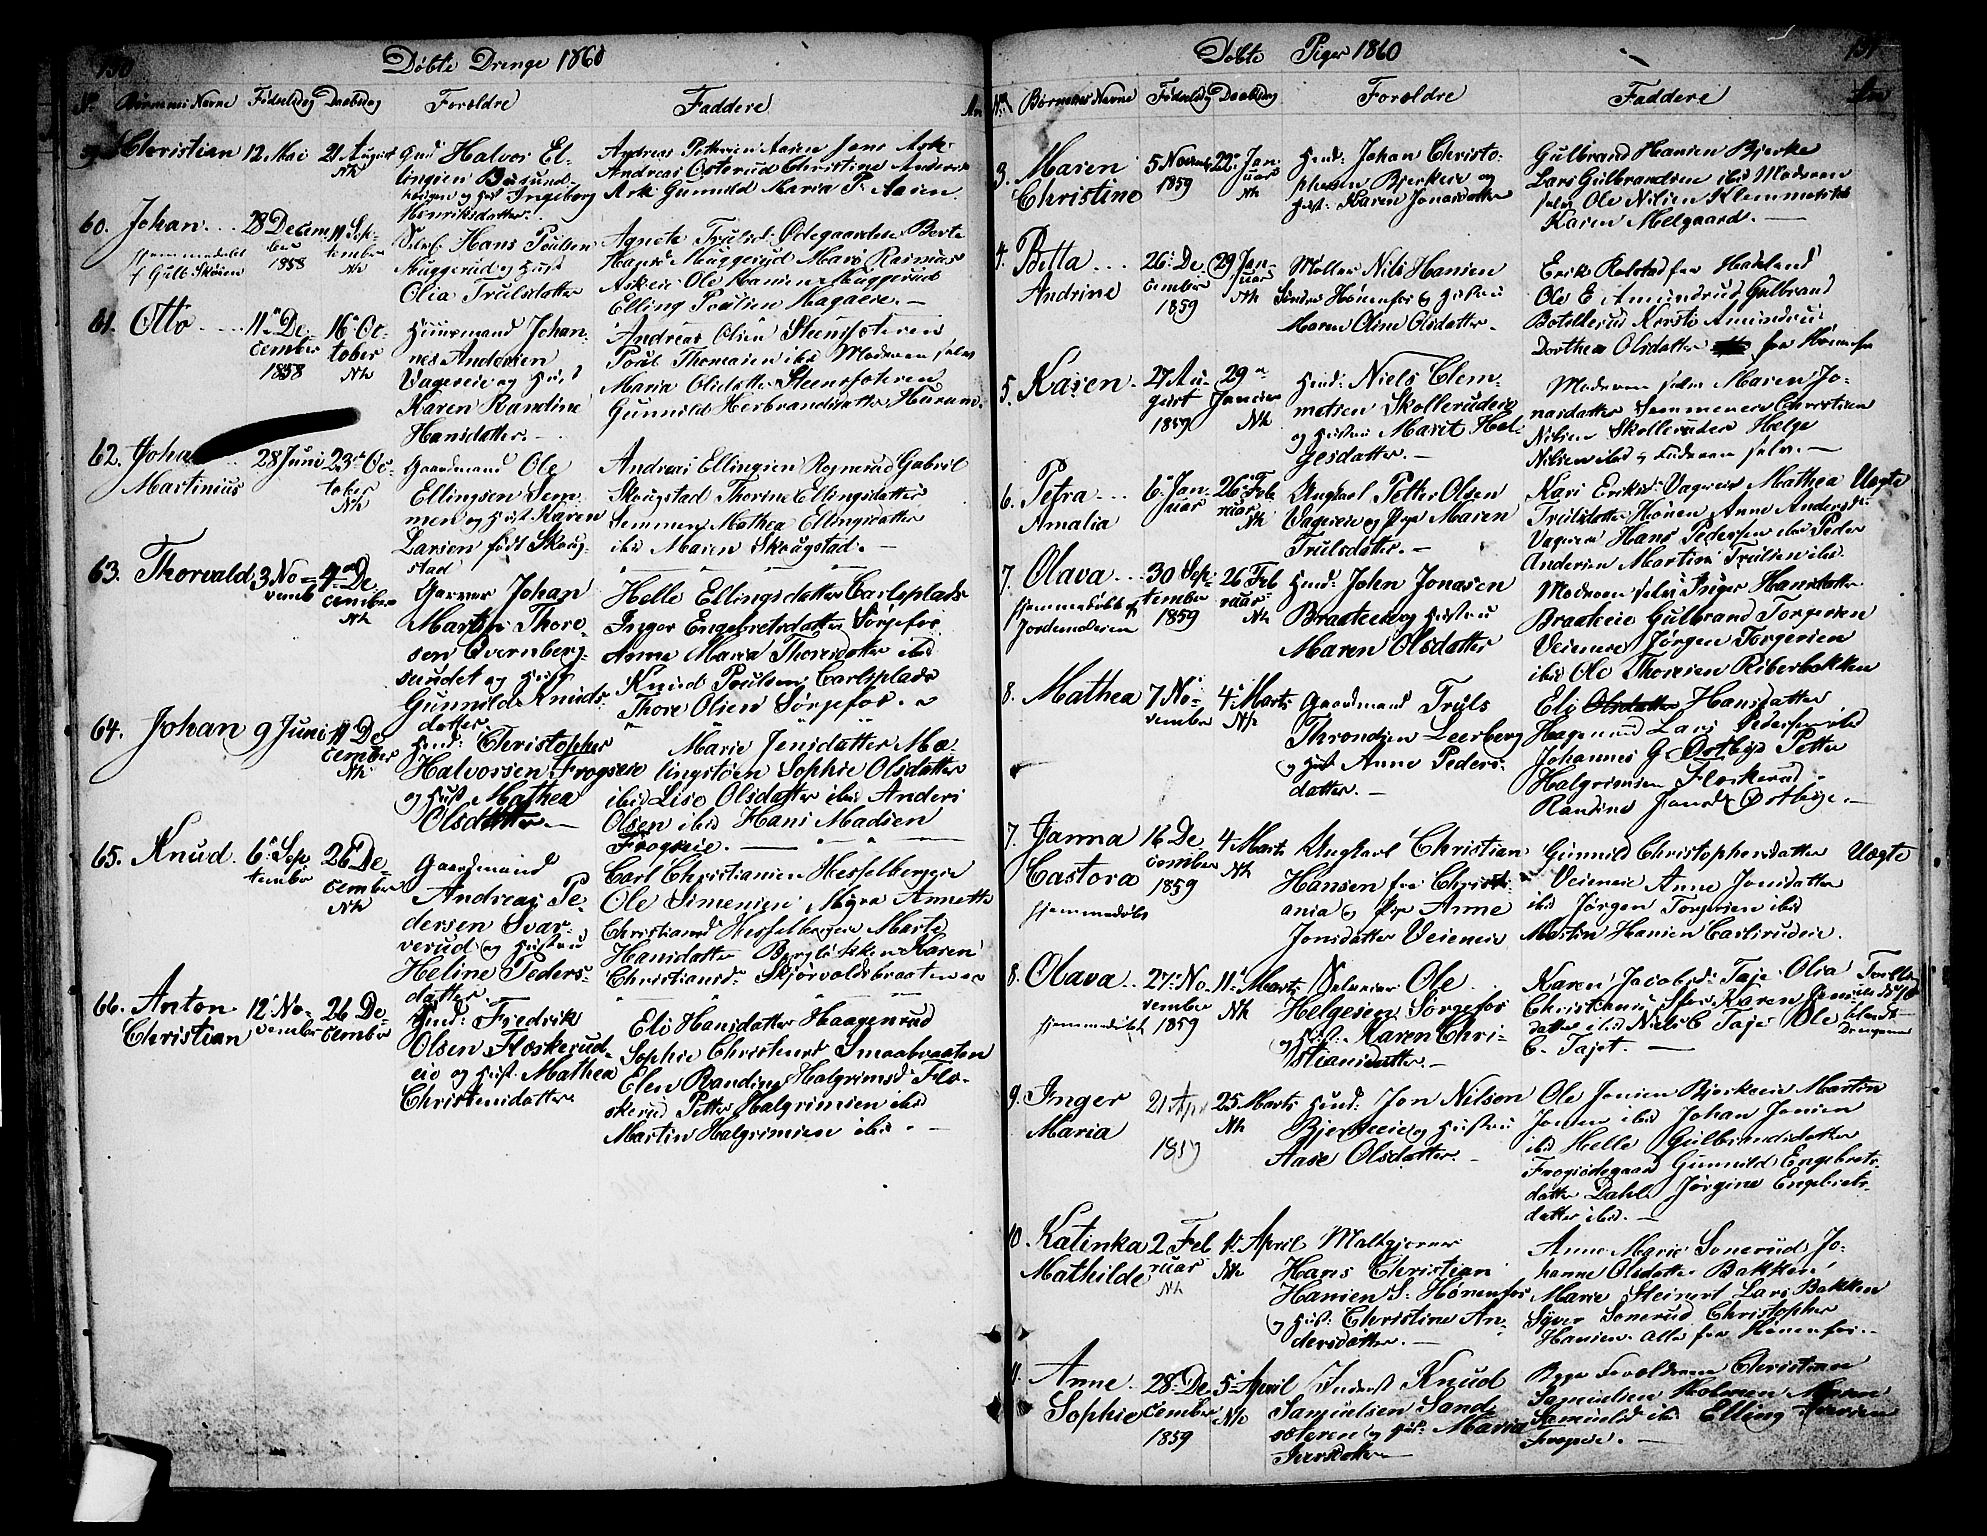 130
Döbte Drenge 1860
No Børnenes Navne Födselsdag Daabsdag Forældre Faddere An
59 Christian 12 Mai 21 August Nh
Gmd Halvor El-
lingsen Busund-
eiegen og Hust Ingeborg
Henriksdatter.
Andreas Pettersen Aasen Jens Ask
Andreas Osterud Christine Anders
Ask Gunnild Maria P. Aasen
60. Johan 28 Decem-
ber 1858 11 Sep-
tember Nh
hjemmedøbt
f Gulb Sköien
Selvf Hans Poulsen
Muggerud og Hust
Olia Trulsdatter
Agnete Trulsd. Ödegaarden Berte
Hansd Muggerud Mari Rasmus
Askeie Ole Hansen Muggerud
Elling Poulsen Hagaeie. —
61. Otto 11 De-
cember
1858 16 Oc-
tober
Nh
Huusmand Johan-
nes Andersen
Vagereie og Hust
Karen Randine
Hansdatter. —
Andreas Olsen Steensæteren
Poul Thomasen ibid Moderen selv
Maria Olsdatter Steensæteren
Gunnild Herbrandsdatter Hurum.
62. Johan
Martinius 28 Juni 23 Oc-
tober
Nh
Gaardmand Ole
Ellingsen Sem-
men og Hust Karen
Larsen født Skoug-
stad
Andreas Ellingsen Rognerud Gabriel
Skougstad Thorine Ellingsdatter
Semmen Mathea Ellingsdatter
ibid Maren Skougstad. —
63. Thorvald 3 No-
vemb 4 De-
cember
Nh
Garver Johan
Martin Thore-
sen Qvernberg-
sundet og Hust
Gunnild Knuds-
datter.
Helle Ellingsdatter Carlsplads
Inger Engebretsdatter Sørgefos
Anne Maria Thoresdatter ibid
Knud Poulsen Carlsplads
Thore Olsen Sørgefos. —
64. Johan 9 Juni 11 De-
cember
Nh
Hmd: Christopher
Halvorsen Frogseie
og Hust Mathea
Olsdatter —
Marie Jensdatter Mæ-
lingstøen Sophie Olsdatter
ibid Lise Olsdatter ibid Anders
Olsen ibid Hans Madsen
Frogseie. —
65. Knud. 6 Sep-
tember 26 De-
cember
Nh
Gaardmand
Andreas Pe-
dersen Svar-
verud og Hustru
Heline Peders-
datter.
Carl Christiansen Hesselbergeie
Ole Simensen Myra Annette
Christiansd Hesselbergeie Marte
Hansdatter Bergløkken Karen
Christiansd. Skjørvoldsbraaten
66. Anton
Christian 12 No-
vember 26 De-
cember
Hmd: Fredrik
Olsen Floskerud-
eie og Hust. Mathea
Christensdatter
Eli Hansdatter Haagenrud
Sophie Christensd Smaabraaten
Elen Randine Halgrimsd Flo-
skerud Petter Halgrimsen ibid
Martin Halgrimsen ibid. —
Döbte Piger 1860
131
No Børnenes Navne Födselsdag Daabsdag Forældre Faddere An
3. Maren
Christine 5 Novemb
1859 22 Jan-
uar
Nh
Hmd: Johan Christo-
phersen Bjerkeie og
Hust: Karen Jonasdatter
Gulbrand Hansen Bjerke
Lars Gulbrandsen ibid Moderen
selv Ole Nilsen Klemmetsrud
Karen Melgaard. —
4. Betta
Andrine 26 De-
cember
1859 29 Jan-
uar
Nh
Møller Nils Hansen
Söndre Hønenfos og Hustru
Maren Oline Olsdatter.
Erik Rolstad fra Hadeland
Ole E. Amundrud Gulbrand
Botellerud Kirsti Amundrud
Dorthea Olsdatter fra Hønenfos
5. Karen 27 Au-
gust
1859 29
Januar
Nh
Hmd: Niels Clem-
metsen Skollerudeie
og Hustru Marit Hel-
gesdatter. —
Moderen selv Maren Jo-
nasdatter Semmeneie Christian
Nilsen Skollerudeie Helge
Nilsen ibid og Faderen selv. —
6. Petra
Amalia 6 Jan-
uar 26 Feb-
ruar
Nh
Ungkarl Petter Olsen
Vagereie og Pige Maren
Trulsdatter. —
Kari Eriksd. Vagereie Mathea
Trulsdatter Hönen Anne Andersd:
Vagereie Hans Pedersen ibid Peder
Andersen Martin Trulsen ibid.
Uægte
7. Olava 30 Sep-
tember
1859 26 Feb-
ruar
Nh
hjemmedøbt af
Jordemoderen
Hmd: John Jonasen
Braateeie og Hustru
Maren Olsdatter
Moderen selv Inger Hansdatter
Braateeie Gulbrand Torgersen
Veieneie Jørgen Torgersen
ibid Ole Thoresen Riberbakken
8. Mathea 7 No-
vember 4 Marts
Nh
Gaardmand Truls
Throndsen Leerberg
og Hust Anne Peders-
datter. —
Eli Olsdatter Hansdatter
Hagenrud Lars Pedersen ibid
Johannes G Østbye Petter
Halgrimsen Floskerud
Randine Jensd Østbye. —
7. Janna
Castora 16 De-
cember
1859 4 Marts
Nh
hjemmedøbt
Ungkarl Christian
Hansen fra Christi-
ania og Pige Anne
Jonsdatter Veieneie
Gunnild Christophersdatter
Veieneie Anne Jonsdatter
ibid Jørgen Torgersen ibid
Martin Hansen Carlsrudeie.
Uægte
8. Olava 27 No-
vember
1859 11 Marts
Nh
hjemmedøbt
Selveier Ole
Helgesen Sørgefos
og Hust: Karen Chri-
stiansdatter. —
Karen Jacobsd: Taje Olia
Christiansd Karen Jens-
datter ibid Niels C. Taje Ole
C. Tajet. —
Tvilling
blandt
Drengene
9. Inger
Maria 21 Apr
1859 25 Marts
Nh
Hmd: Jon Nilsen
Bjerkeeie og Hustru
Aase Olsdatter. —
Ole Jonsen Bjerkeeie Martin
Jonsen ibid Johan Jonsen
ibid Helle Gulbrandsdatter
Frogsödegaard Gunnild Engebrets-
datter Dahl Jørgine Engebrets-
datter ibid. —
10. Katinka
Mathilde 2 Feb-
ruar
Nh 1 April
Nh
Maltgjører
Hans Christian
Hansen S. Hønenfos
og Hust: Christine An-
dersdatter. —
Anne Marie Sonerud Jo-
hanne Olsdatter Bakken
Marie Steinert Lars Bakken
Syver Sonerud Christopher
Hansen alle fra Hønenfos. —
11. Anne
Sophie 28 De-
cember
1859 5 April
Nh
Inderst Knud
Samuelsen Sand-
sæteren og Hust: Maria
Iversdatter
Begge Forældrene Christian
Samuelsen Holmen Maren
Samuelsd ibid Elling Iversen
Frogseie. —